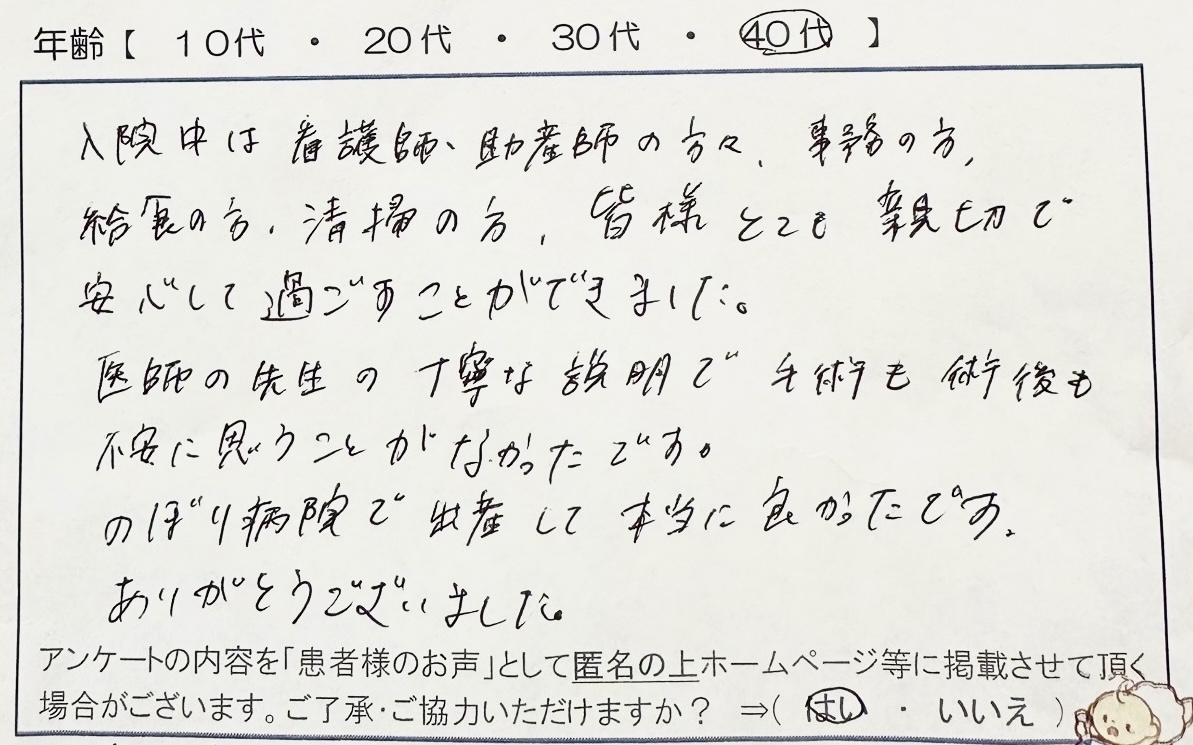 年齢【 10代 ・ 20代 ・ 30代 ・ 40代 】
入院中は看護師、助産師の方々、事務の方、
給食の方、清掃の方、皆様とても親切で
安心して過ごすことができました。
医師の先生の丁寧な説明で手術も術後も
不安に思うことがなかったです。
のぼり病院で出産して本当に良かったです。
ありがとうございました。
アンケートの内容を「患者様のお声」として匿名の上ホームページ等に掲載させて頂く
場合がございます。ご了承・ご協力いただけますか？ ⇒( はい ・ いいえ )